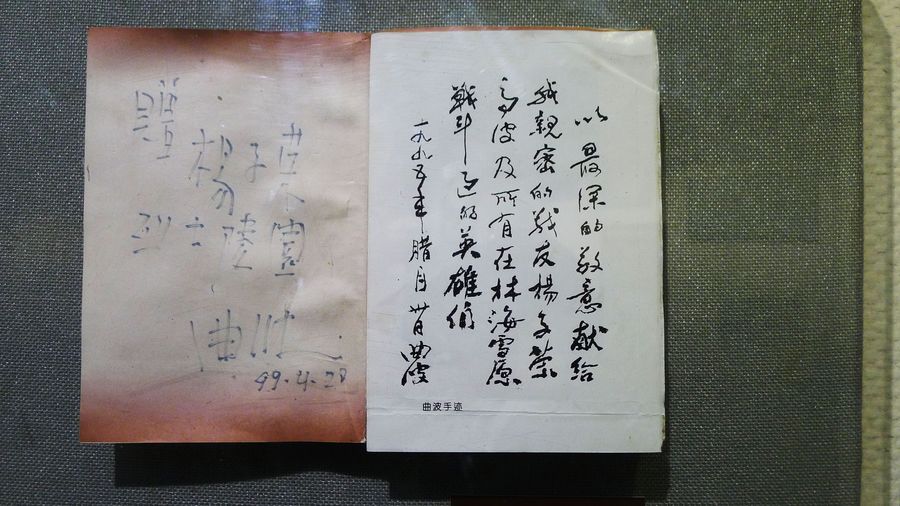 贈
楊子荣
烈士陵園
曲波
99.4.28
以最深的敬意献给
我親密的战友楊子荣
高波及所有在林海雪原
戰斗过的英雄们
一九九五年腊月卅日 曲波
曲波手迹